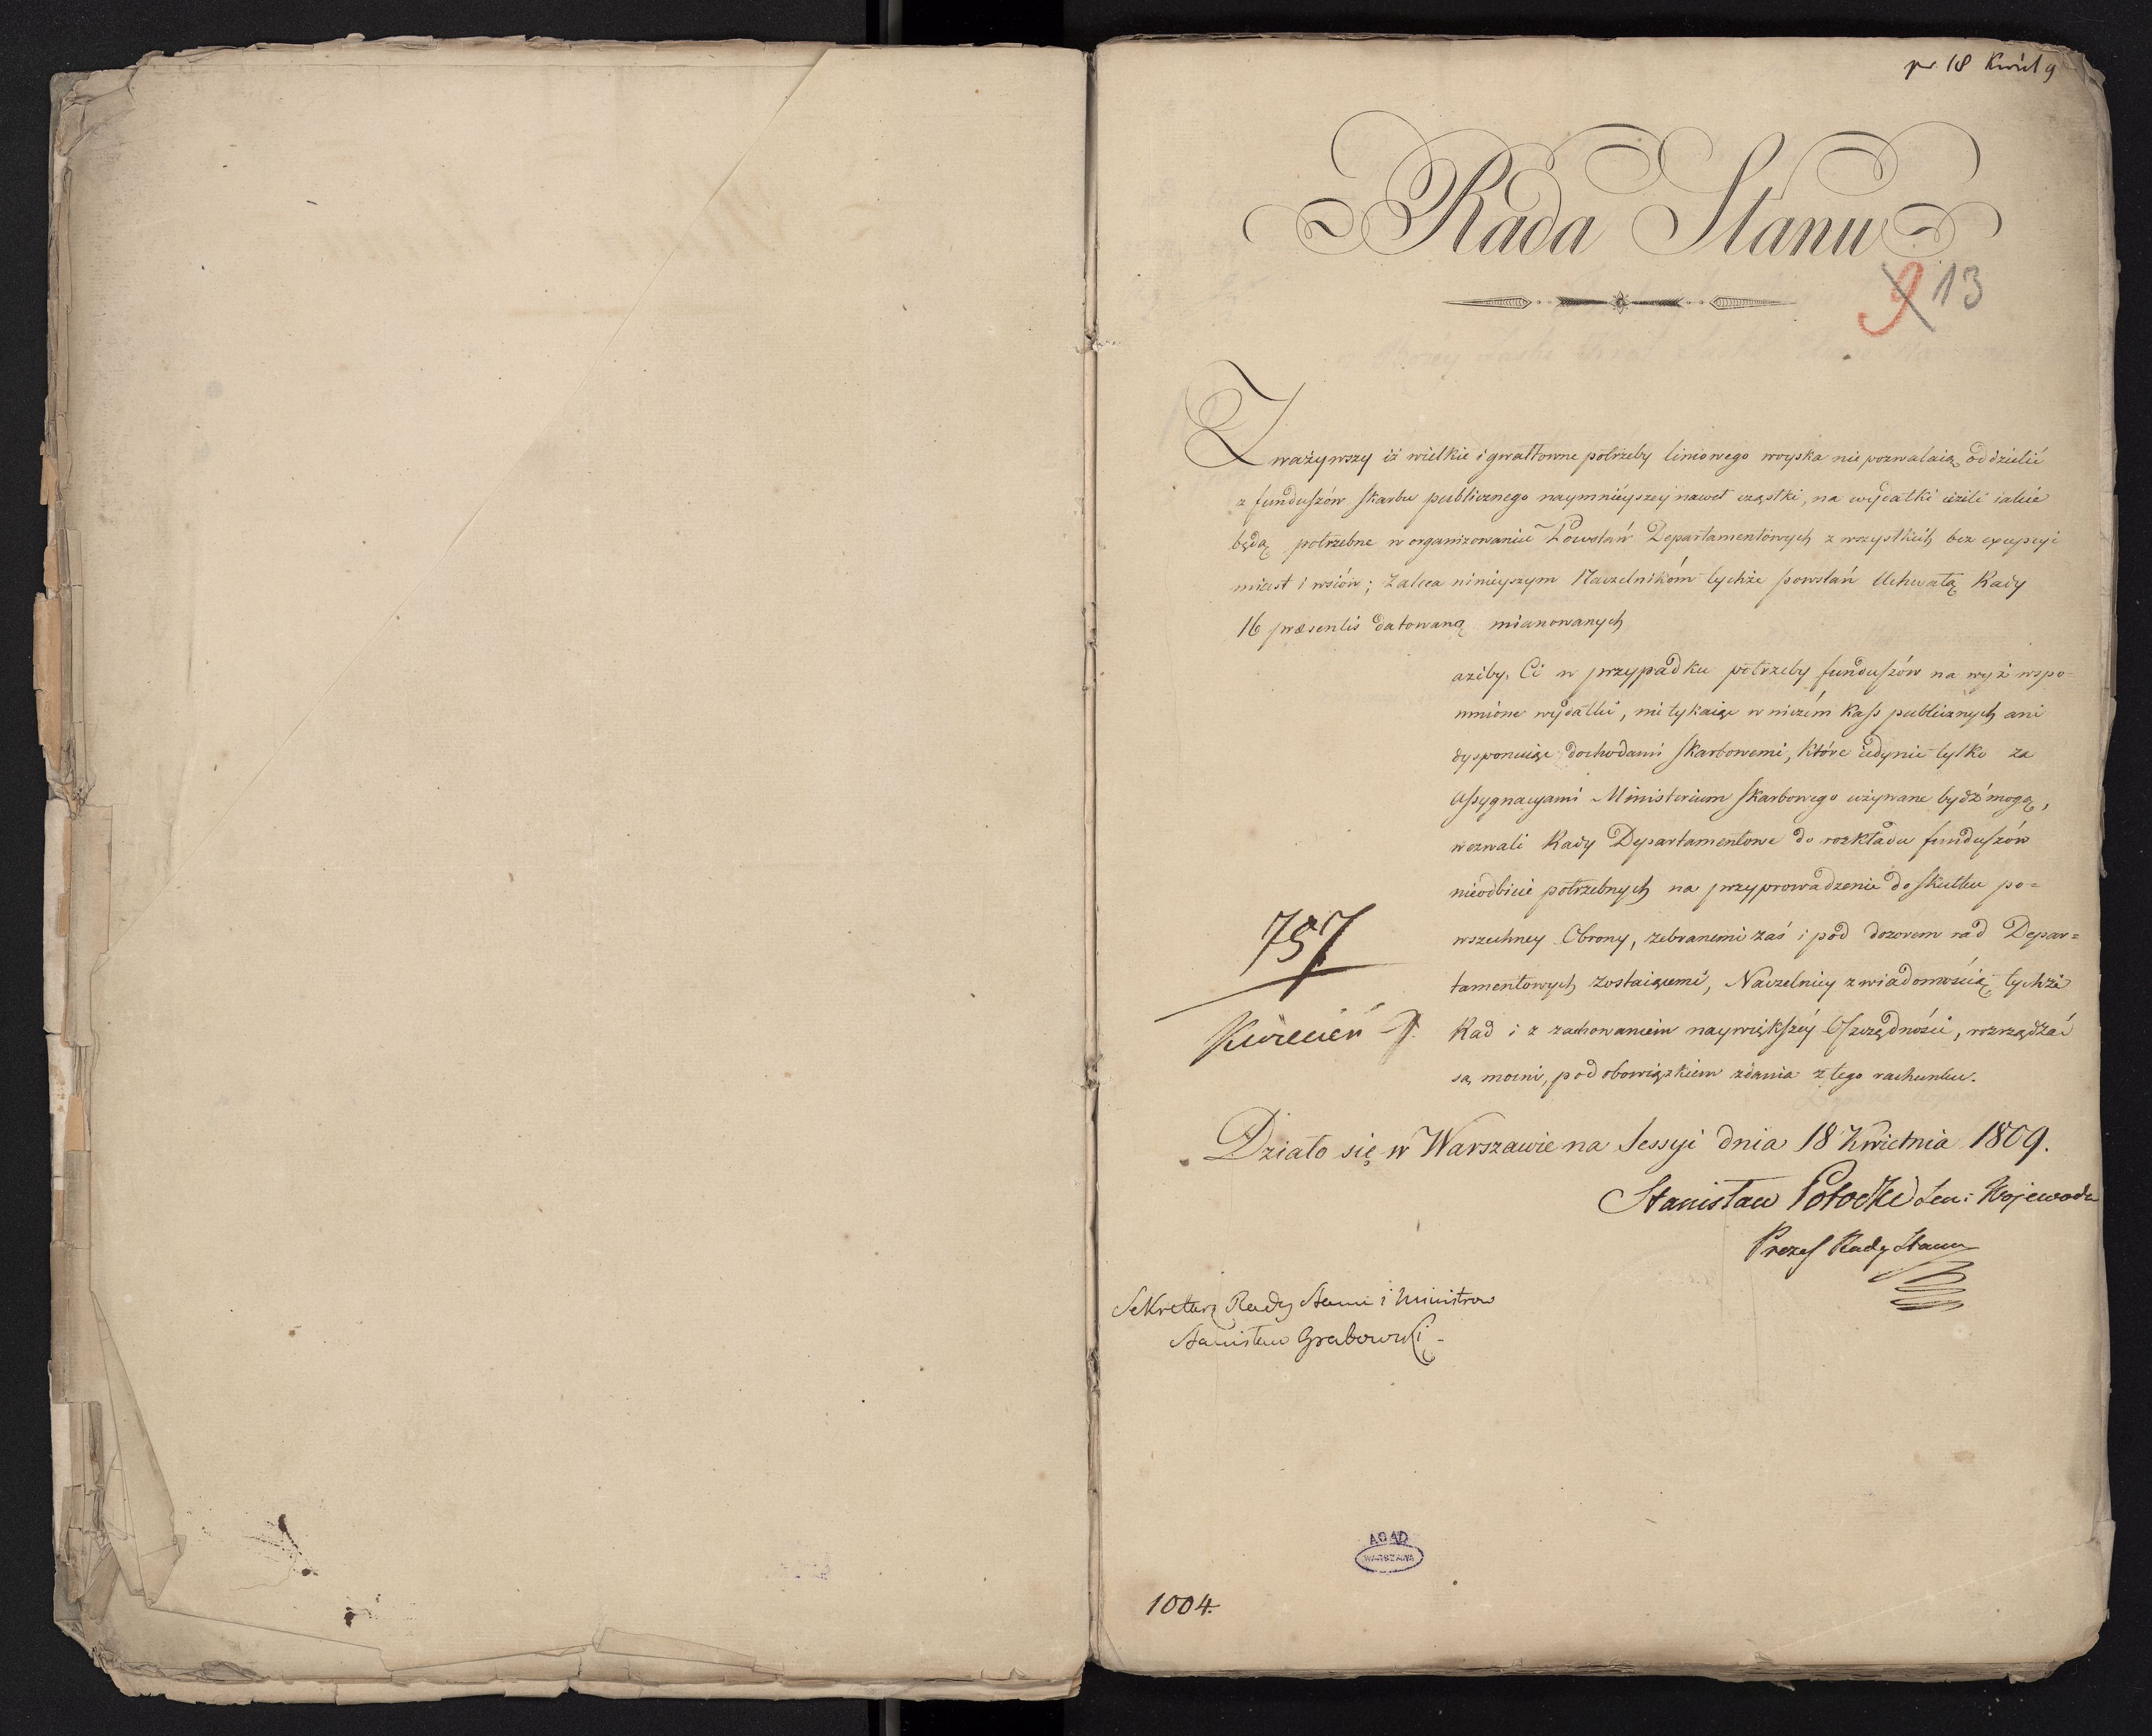 pr 18 Kwiet 9
Rada Stanu
9 13
Zważywszy iż wielkie i gwałtowne potrzeby liniowego woyska nie pozwalaią oddzielić
z funduszów skarbu publicznego naymnieyszey nawet cząstki, na wydatki ieżeli iakie
będą potrzebne w organizowaniu Powstań Departamentowych z wszystkich bez excepcyi
miast i wsiów; Zaleca ninieyszym Naczelnikóm tychże powstań Uchwałą Rady
16 præsentis datowaną mianowanych
ażeby Ci w przypadku potrzeby funduszów na wyż wspo-
mnione wydatki, nie tykaiąc w niczém Kass publicznych ani
dysponuiąc dochodami skarbowemi, które iedynie tylko za
Assygnacyami Ministerium skarbowego używane bydź mogą,
wezwali Rady Departamentowe do rozkładu funduszów
nieodbicie potrzebnych na przyprowadzenie do skutku po=
wszechney Obrony, zebranemi zaś i pod dozorem rad Depar=
tamentowych zostaiącemi, Naczelnicy z wiadomością tychże
Rad i z zachowaniem naywiększéy Oszczędności, rozrządzać
są mocni, pod obowiązkiem zdania z tego rachunku.
757
Kwiecień 9.
Działo się w Warszawie na Sessyi dnia 18 Kwietnia 1809.
Stanisław Potocki Sen: Wojewoda
Prezes Rady Stanu
Sekretarz Rady Stanu i Ministrow
Stanisław Grabowski
AGAD
WARSZAWA
1004.